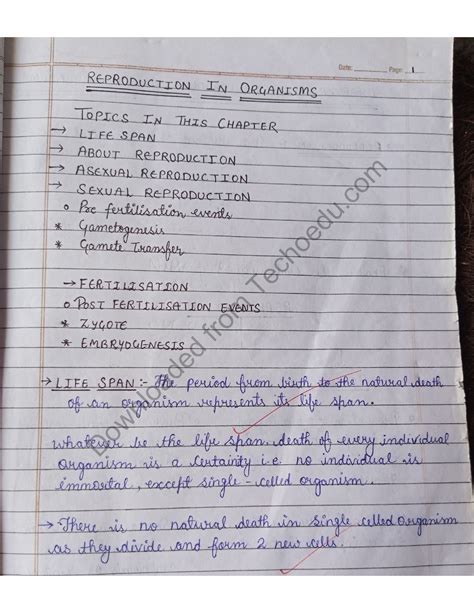 Date: Page: 1
REPRODUCTION IN ORGANISMS
TOPICS IN THIS CHAPTER
→ LIFE SPAN
→ ABOUT REPRODUCTION
→ ASEXUAL REPRODUCTION
→ SEXUAL REPRODUCTION
o Pre fertilisation events
* Gametogenesis
* Gamete Transfer
→ FERTILISATION
o POST FERTILISATION EVENTS
* ZYGOTE
* EMBRYOGENESIS
→ LIFE SPAN :- The period from birth to the natural death
of an organism represents its life span.
Whatever be the life span, death of every individual
organism is a certainty i.e. no individual is
immortal, except single-celled organism.
→ There is no natural death in single celled organism
as they divide and form 2 new cells.
Downloaded from Techoedu.com